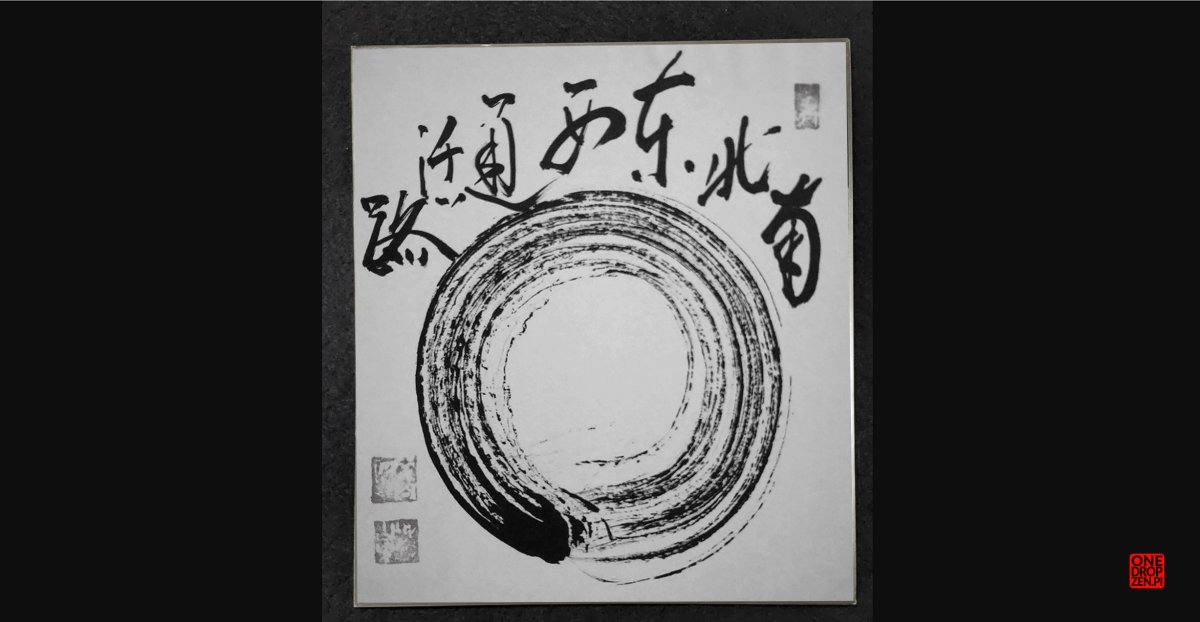 南北東西通活路
ONE
DROP
ZEN.PL